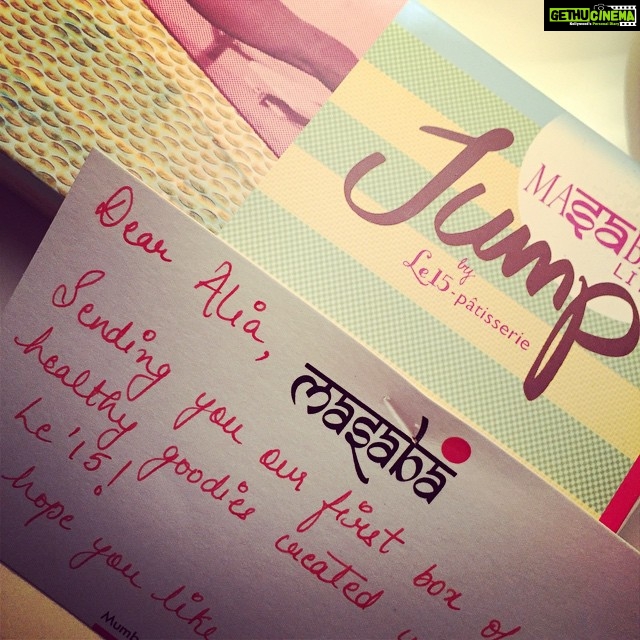 GETHUCINEMA
Kollywood's Personal Diary
MA
LI
Jump
by
Le15-pâtisserie
Dear Alia,
masaba
Sending you our first box of
healthy goodies created
Le '15!
hope you like
Mumb